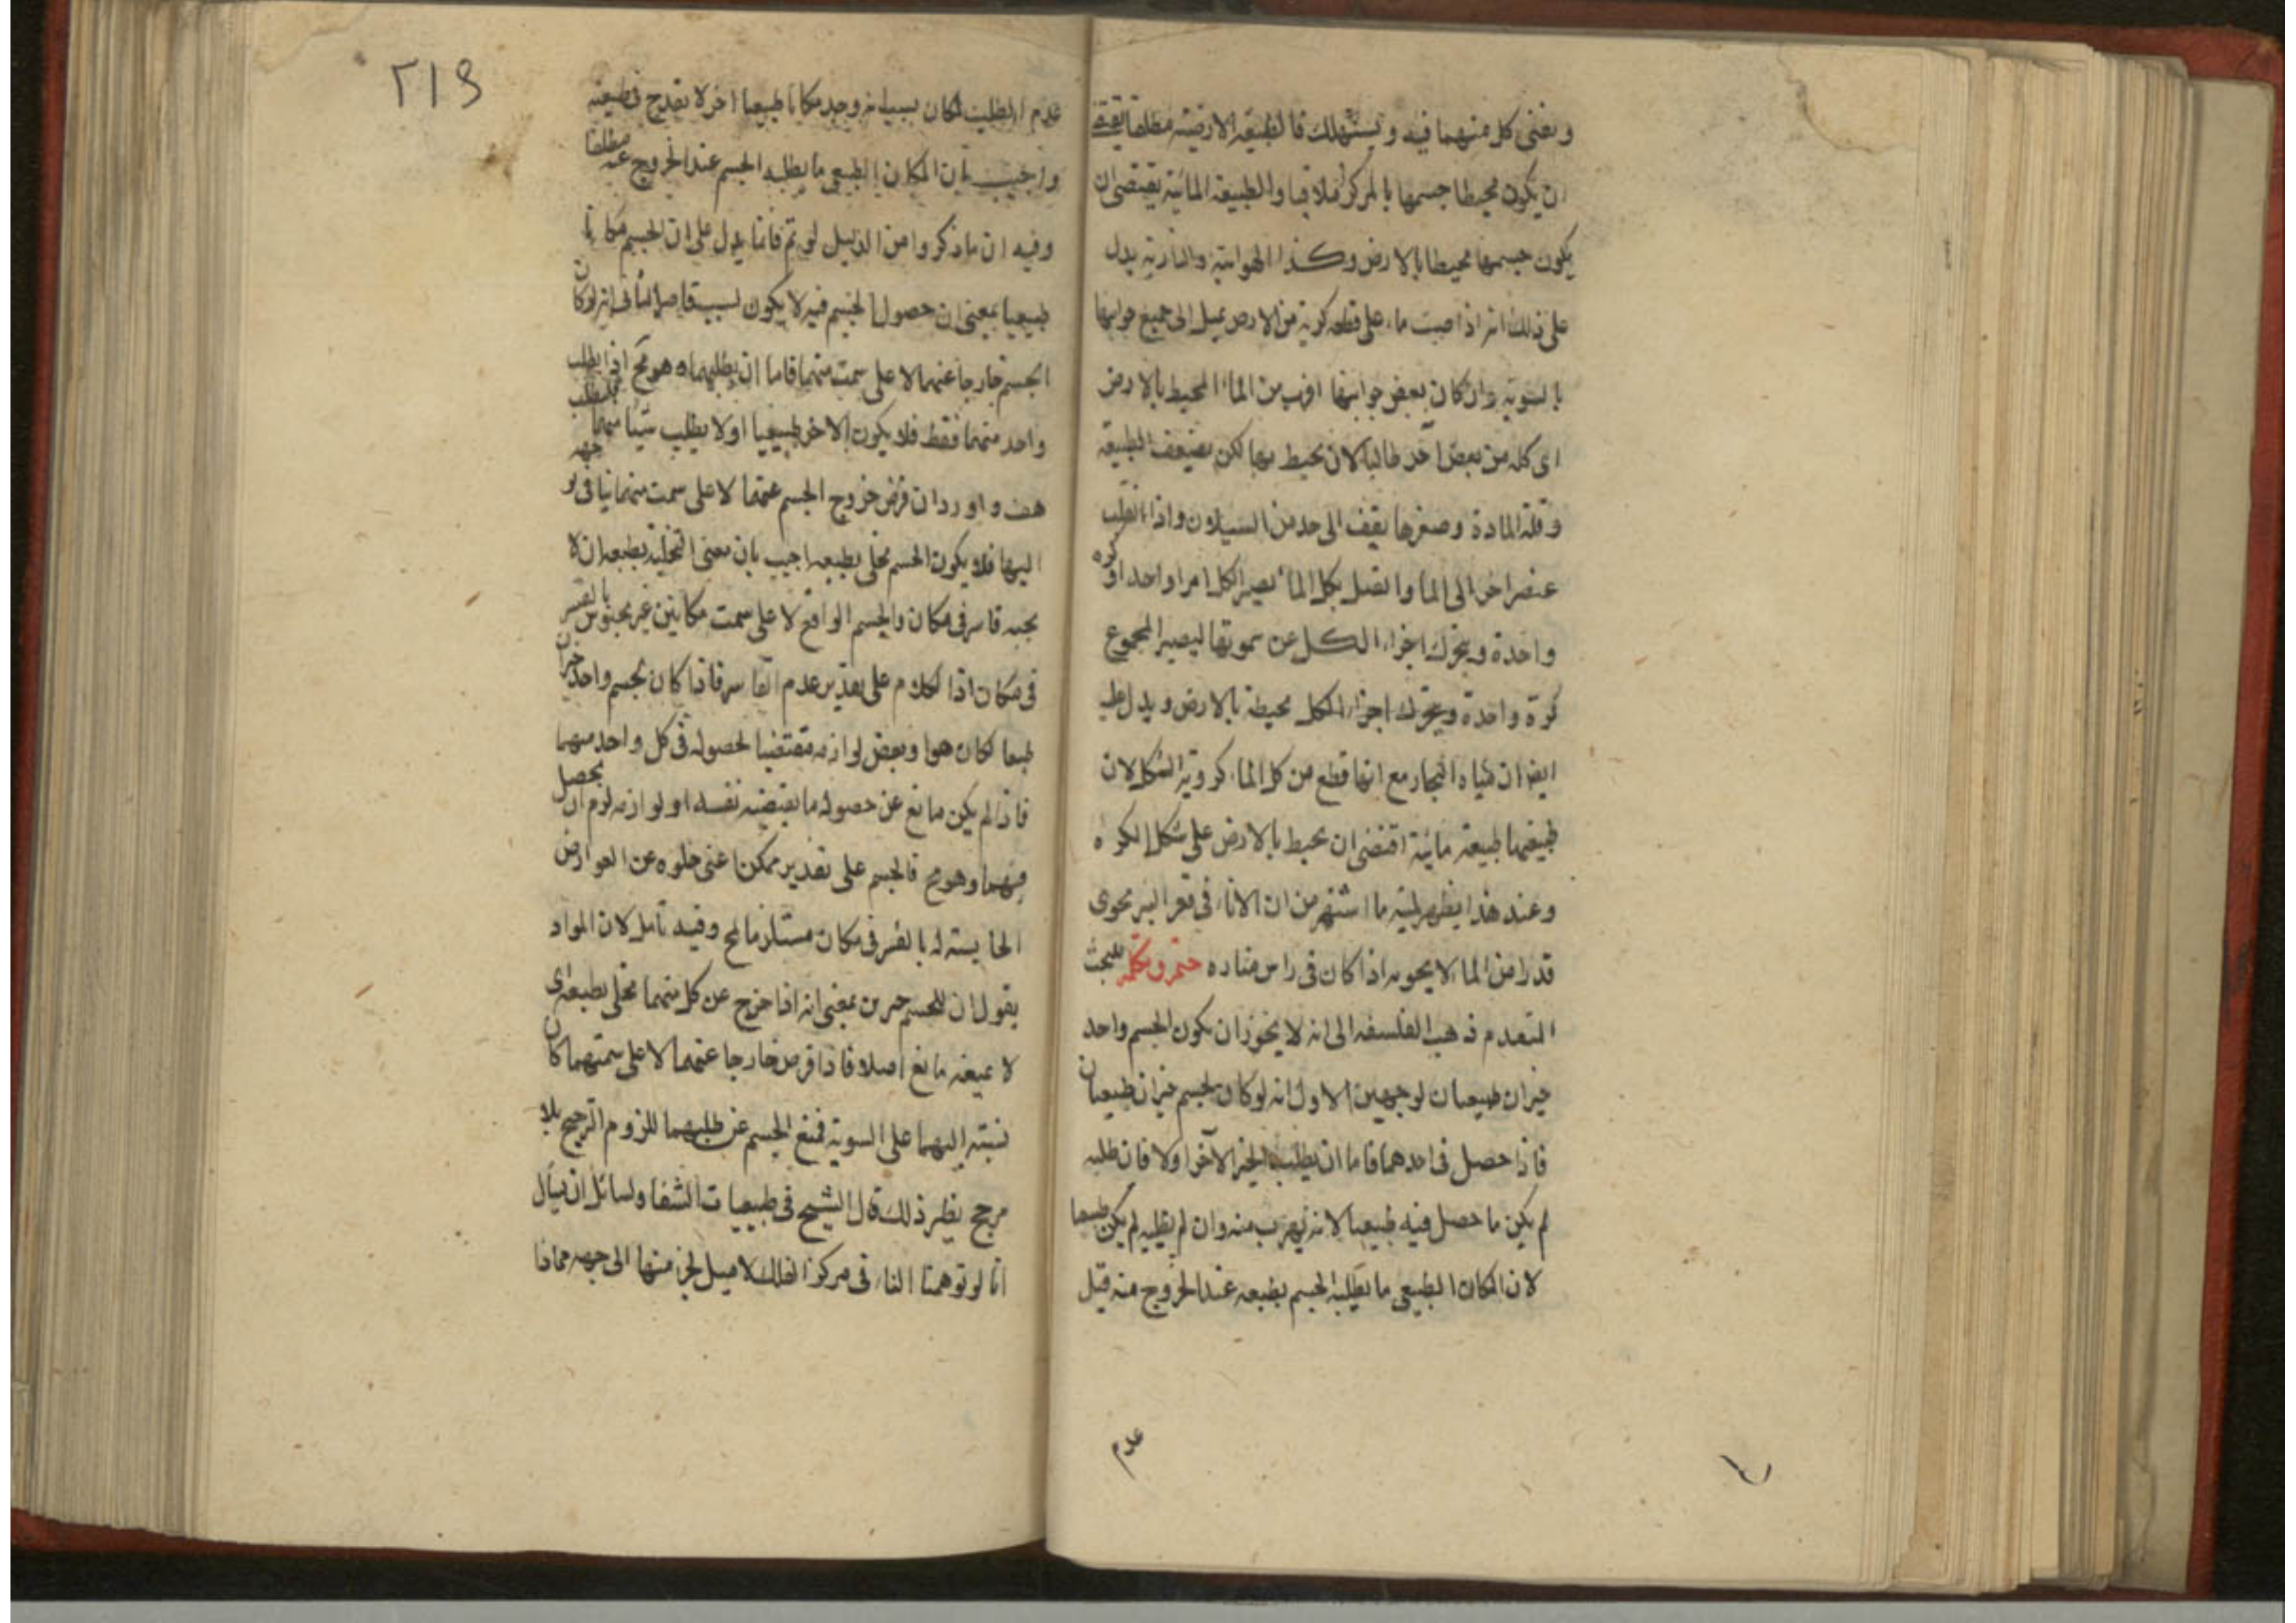 ويفنى كل منهما فيه ويستهلك فالطبيعة الارضية مطلقا يقتضى
ان يكون محيطا جسمها بالمركز ملاقيا والطبيعة المائية يقتضى ان
يكون جسمها محيطا بالارض وكذا الهوائية والنارية يدل
على ذلك انه اذا صبت ماء على قطعة كرية من الارض يميل الى جميع جوانبها
بالسوية وان كان بعض جوانبها اقرب من الماء المحيط بالارض
اى كله من بعض آخر طالبا لان يحيط بها لكن بضعف الطبيعة
وقلة المادة وصغرها يقف الى حد من السيلان واذا انقلب
عنصر اخر الى الماء واتصل بكل الماء يصير الكل امرا واحدا وكره
واحدة ويتحرك اجزاء الكل عن سموتها ليصير المجموع
كرة واحدة ويتحرك اجزاء الكل محيطة بالارض ويدل عليه
ايضا ان مياه البحار مع انها قطع من كل الماء كروية الشكل لان
طبيعتها طبيعة مائية اقتضى ان يحيط بالارض على شكل الكره
وعند هذا يظهر لمية ما اشتهر من ان الاناء فى قعر البير يحوى
قدرا من الماء لا يحويه اذا كان فى راس مناره ختم وتكملة للبحث
المتقدم ذهب الفلسفه الى انه لا يجوز ان يكون لجسم واحد
حيزان طبيعيان لوجهين الاول انه لو كان لجسم حيزان طبيعيان
فاذا حصل فى احدهما فاما ان يطلب الحيز الآخر اولا فان طلبه
لم يكن ما حصل فيه طبيعيا لانه يهرب منه وان لم يطلبه لم يكن طبيعيا
لان المكان الطبيعى ما يطلبه الجسم بطبعه عند الخروج منه قيل
عدم
٢١٩
عدم الطلب لمكان بسبب انه وجد مكانا طبيعيا اخر لا يقدح فى طبيعته
واجيب بان المكان الطبيعى ما يطلبه الجسم عند الخروج عنه مطلقا
وفيه ان ما ذكروا من الدليل لو تم فانما يدل على ان للجسم مكانا
طبيعيا بمعنى ان حصول الجسم فيه لا يكون لسبب قاصر الثانى انه لو كان
الجسم خارجا عنهما لا على سمت منهما فاما ان يطلبهما وهو مح او يطلب
واحد منهما فقط فلا يكون الاخر طبيعيا اولا يطلب شيئا منهما
هف واورد ان فرض خروج الجسم عنهما لا على سمت منهما ينافى توجهه
اليها فلا يكون الجسم مخلى بطبعه اجيب بان معنى التخلية بطبعه ان لا
يجبه قاسر فى مكان والجسم الواقع لا على سمت مكانين غير محبوس بالقسر
فى مكان اذا الكلام على تقدير عدم القاسر فاذا كان لجسم واحد حيزان
طبعا لكان هو او بعض لوازمه مقتضيا لحصوله فى كل واحد منهما
فاذا لم يكن مانع عن حصوله ما يقتضيه نفسه او لوازمه لزم ان يحصل
فيهما وهو مح فالجسم على تقدير ممكن اعنى خلوه عن العوارض
الحابسته له بالقسر فى مكان مستلزما لمح وفيه تامل لان المراد
بقول ان للجسم حيزين بمعنى انه اذا خرج عن كل منهما مخلى بطبعه اى
لا يمنعه مانع اصلا فاذا فرض خارجا عنهما لا على سمتهما كان
نسبته اليهما على السوية فمنع الجسم عن طلبهما للزوم الترجيح بلا
مرجح نظير ذلك قال الشيخ فى طبيعيات الشفا ولسائل ان يسأل
انا لو توهمنا النار فى مركز الفلك لا ميل لجزء منها الى جهه مما ذا